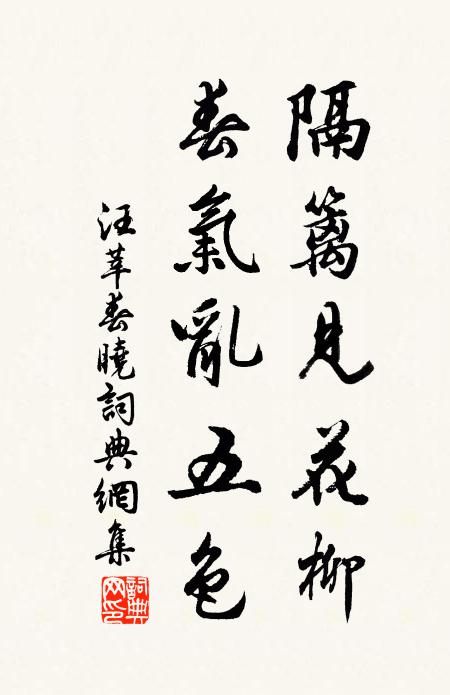 隔籬見花柳
春氣亂五色
汪莘春曉詞典網集
詞典网印